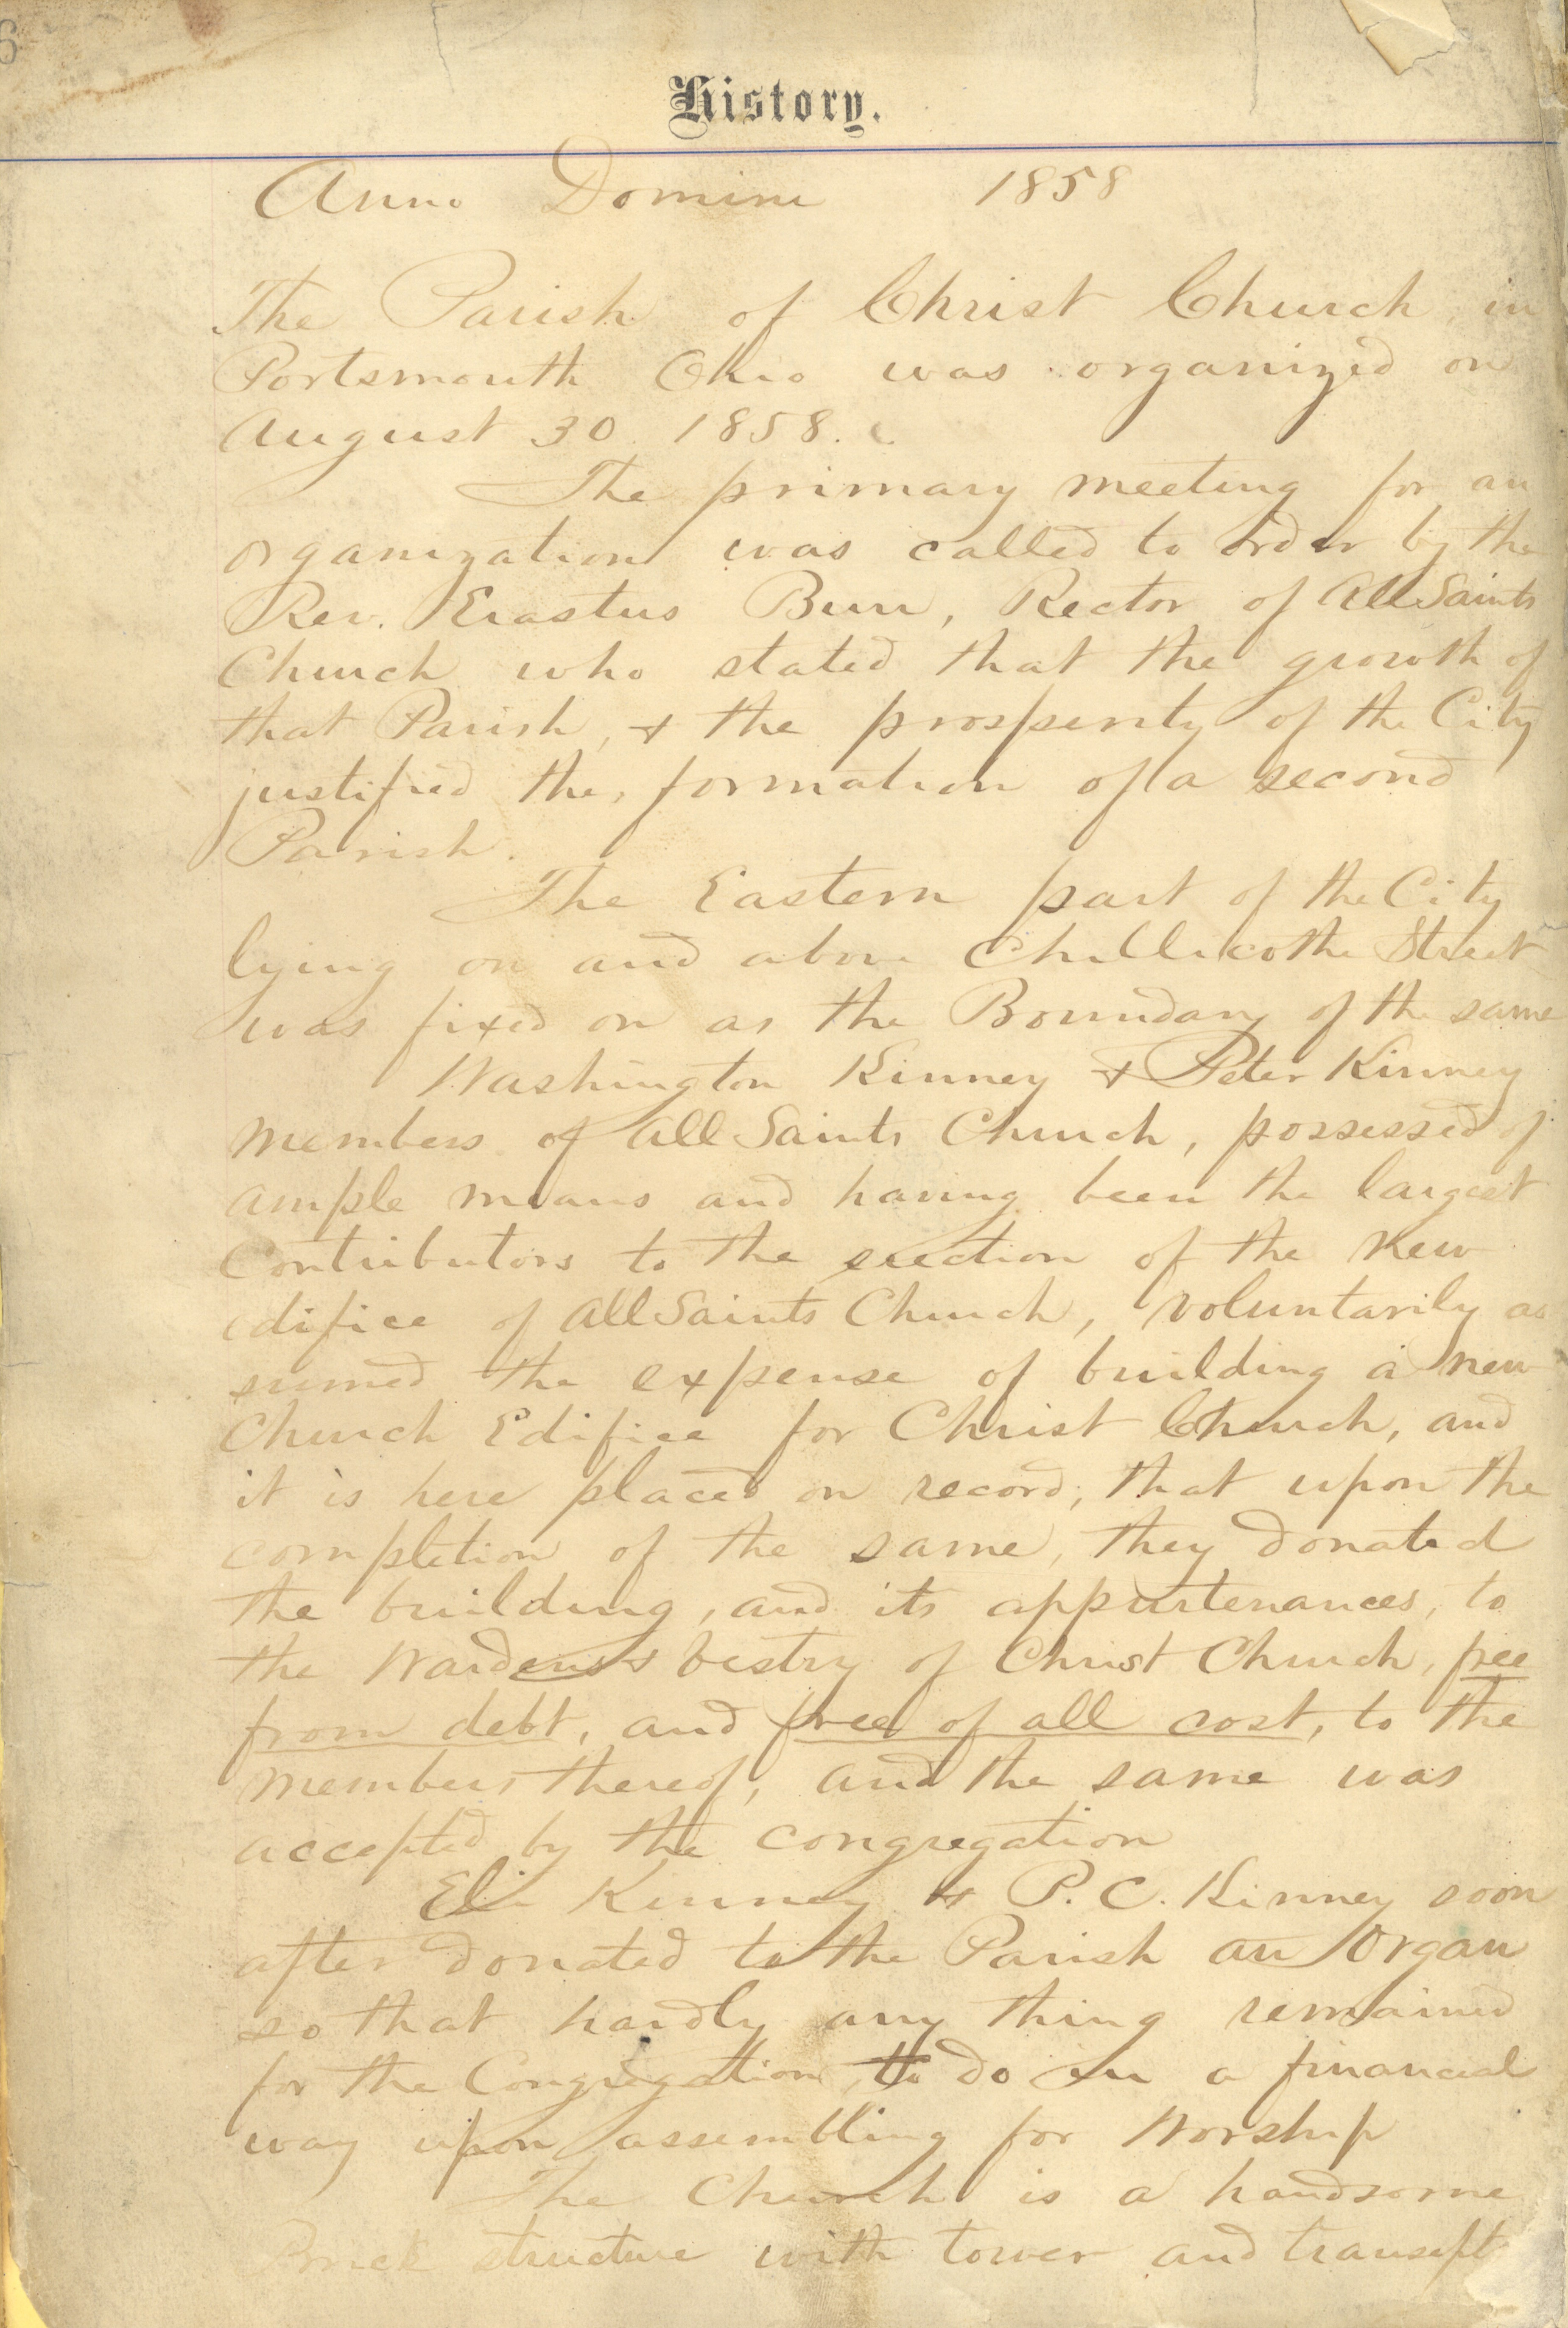 6
History.
Anno Domini 1858
The Parish of Christ Church in
Portsmouth Ohio was organized on
August 30. 1858.
The primary meeting for an
organization was called to order by the
Rev. Erastus Burr, Rector of All Saints
Church who stated that the growth of
that Parish, & the prosperity of the City
justified the formation of a second
Parish.
The Eastern part of the City
lying on and above Chillicothe Street
was fixed on as the Boundary of the same
Washington Kinney & Peter Kinney
members of All Saints Church, possessed of
ample means and having been the largest
Contributors to the erection of the new
edifice of All Saints Church, voluntarily as
sumed the expense of building a new
Church Edifice for Christ Church, and
it is here placed on record, that upon the
completion of the same, they donated
the building, and its appurtenances, to
the Wardens & Vestry of Christ Church, free
from debt, and free of all cost, to the
members thereof, and the same was
accepted by the congregation
Eli Kinney & P. C. Kinney soon
after donated to the Parish an Organ
so that hardly any thing remained
for the Congregation to do in a financial
way upon assembling for Worship
The Church is a handsome
Brick structure with tower and transept